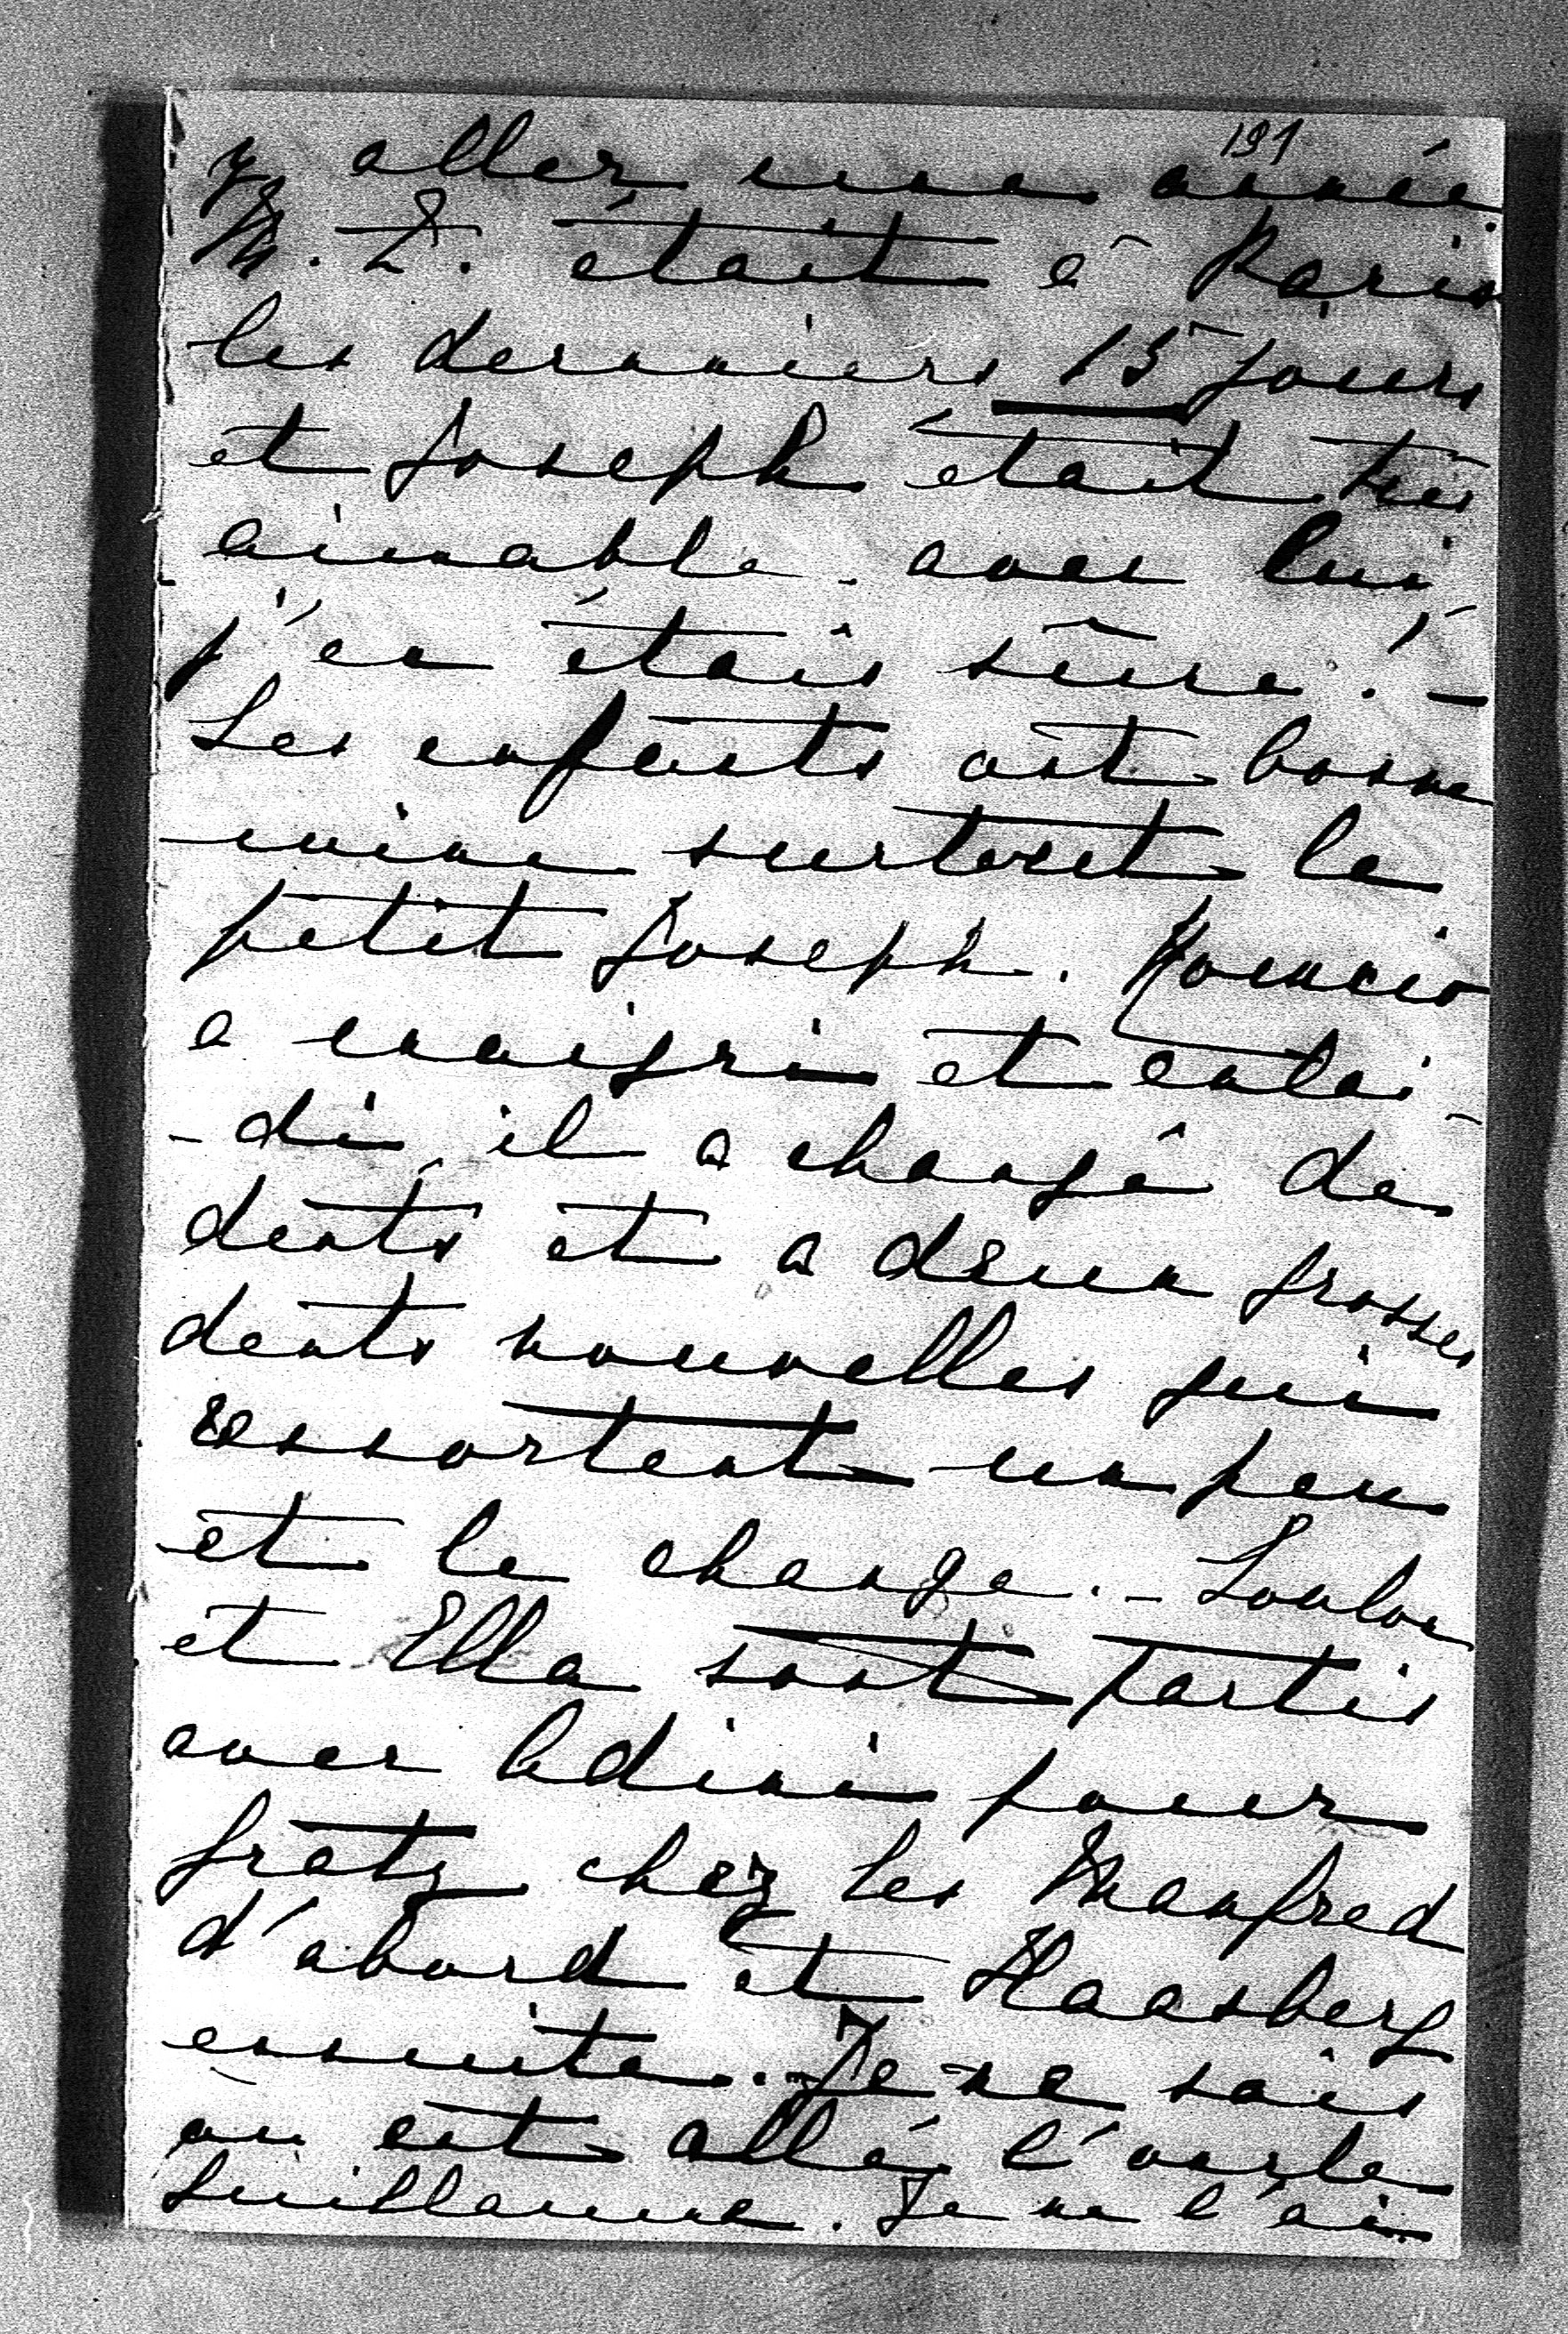 191
y aller une année.
M. L. était à Paris
les derniers 15 jours
et Joseph était très
aimable avec lui
j'en étais sûre! –
Les enfants ont bonne
mine surtout le
petit Joseph.
a maigri et enlai-
-di, il a changé de
dents et a deux grosses
dents nouvelles qui
ressortent un peu
et le change. – Loulou
et Ella sont partis
avec Adini pour
Gratz chez les Manfred
d'abord et Haasberg
ensuite. Je ne sais
ou est allé l'oncle
Guillaume. Je ne l'ai